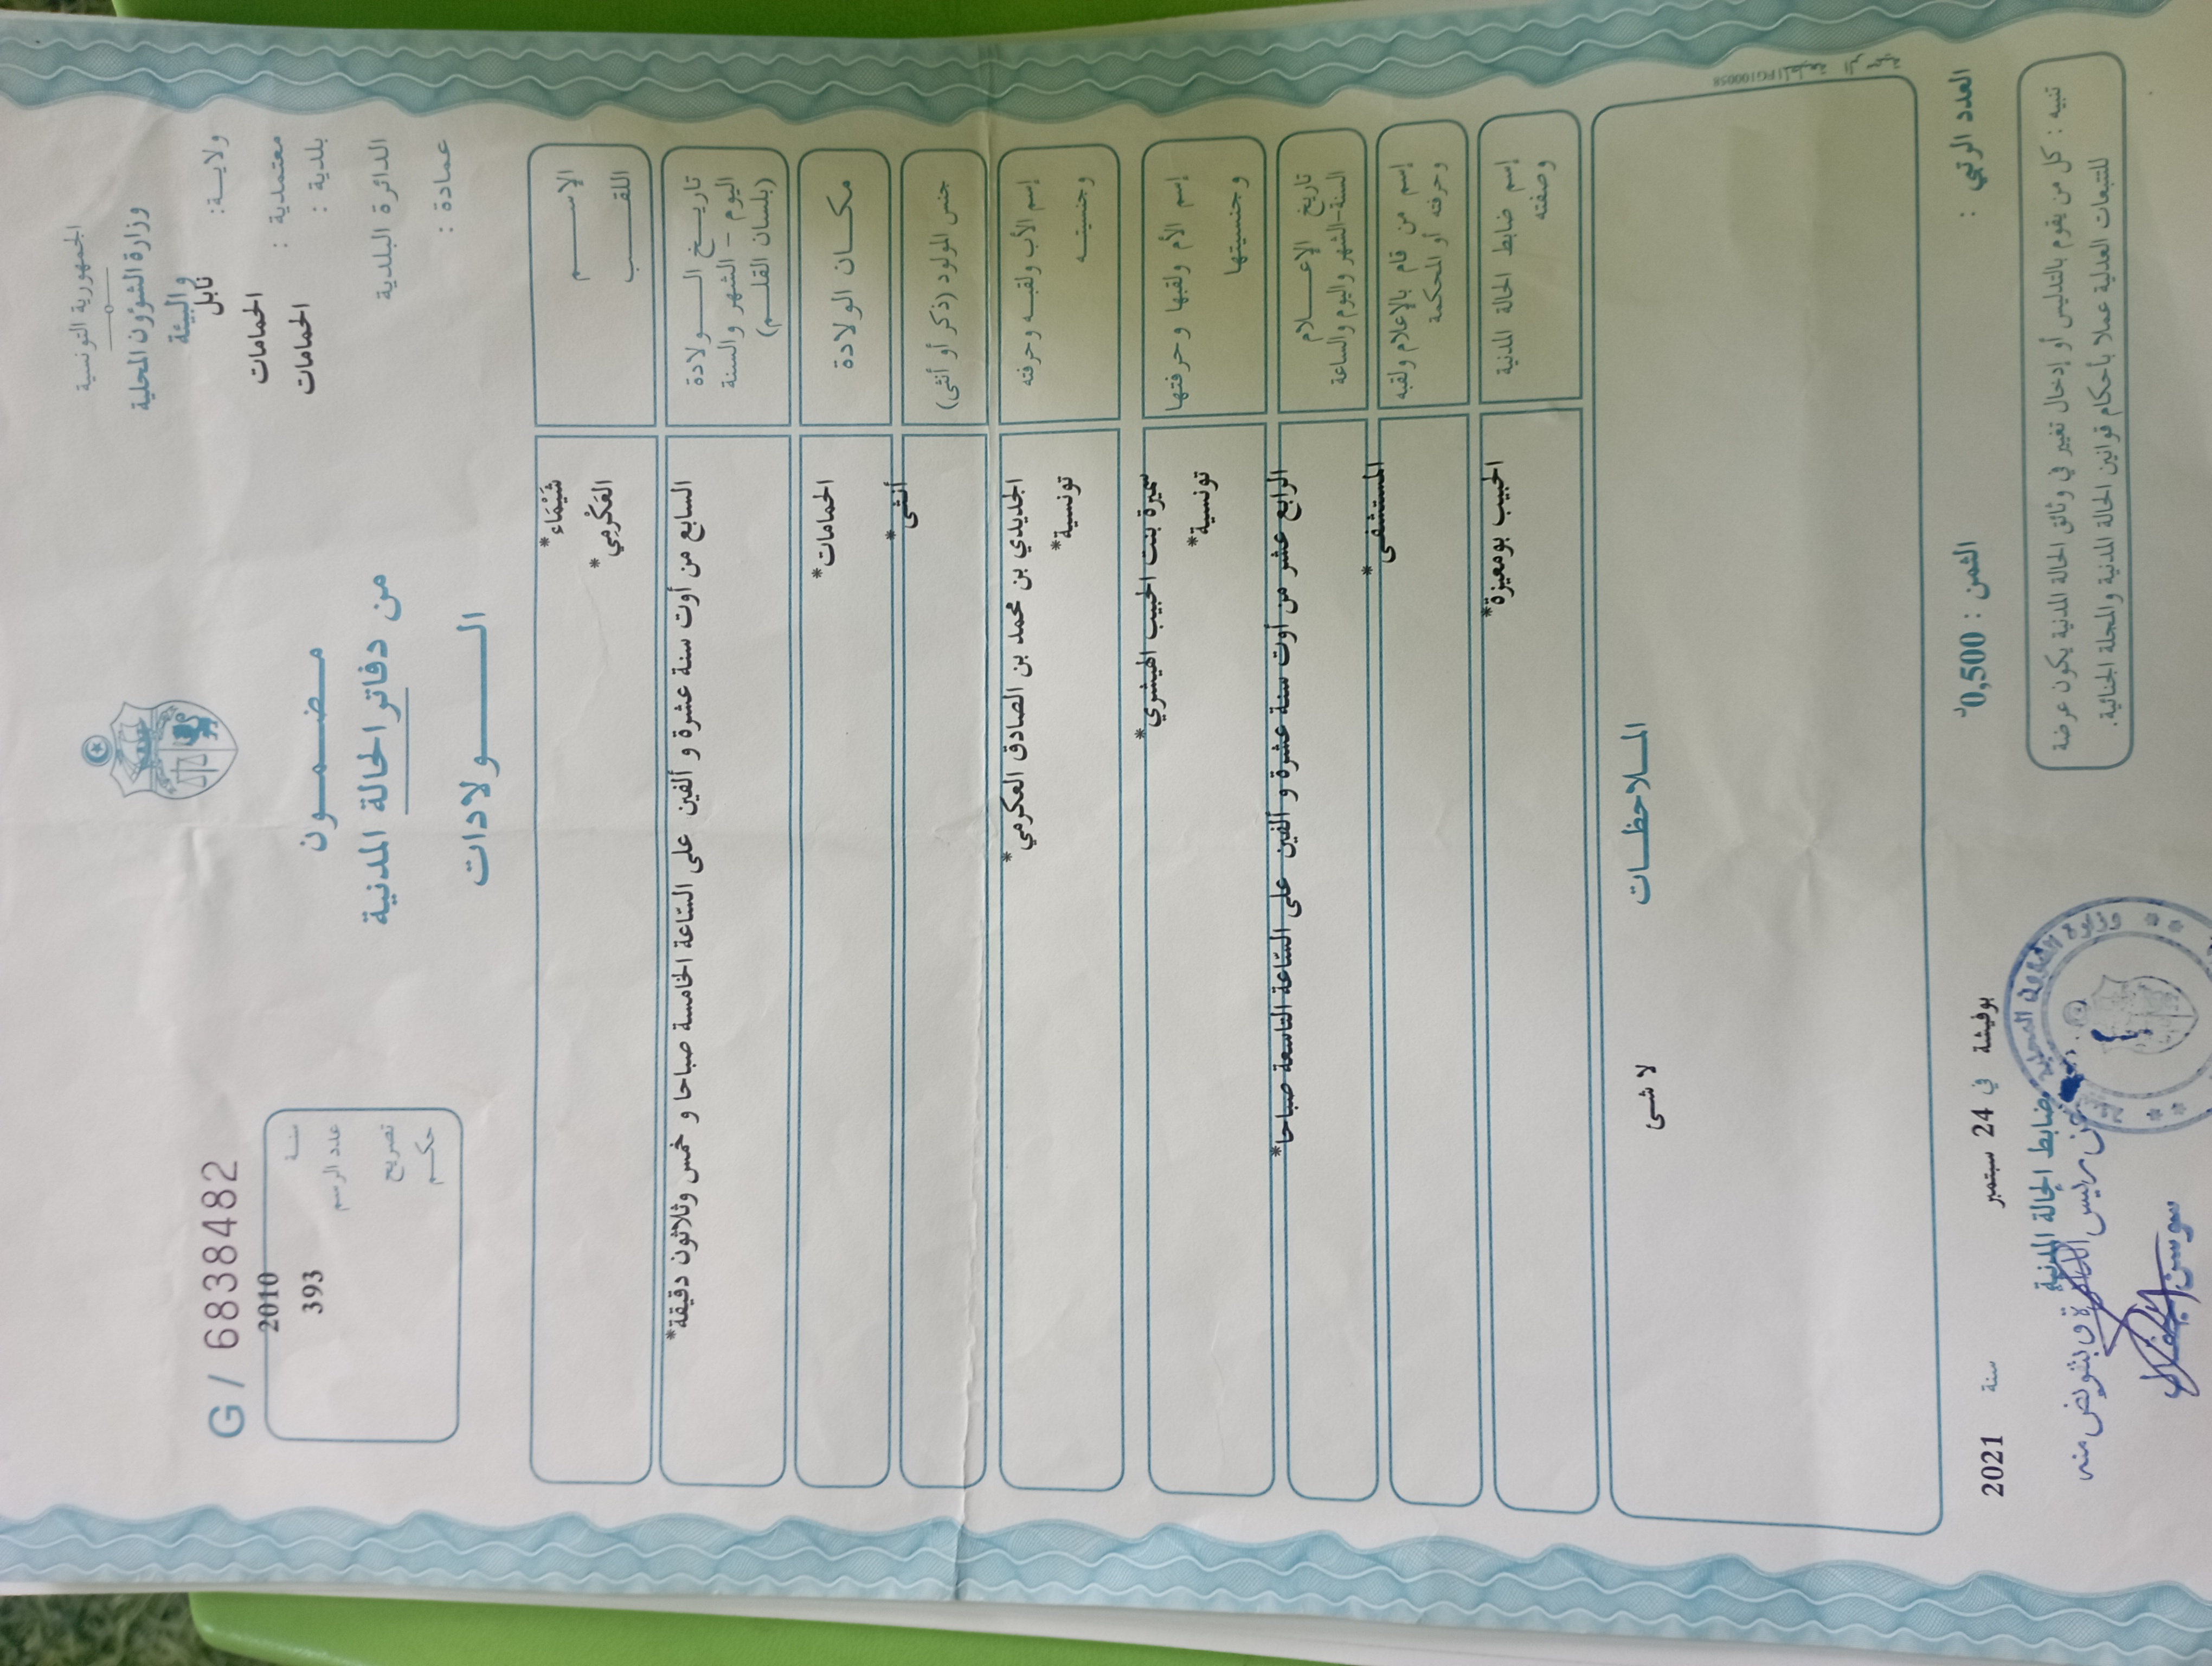 الجمهورية التونسية
وزارة الشؤون المحلية
والبيئة
ولايـــة: نابل
معتمدية : الحمامات
بلدية : الحمامات
الدائرة البلدية
عمادة :
G / 6838482
سنـــة 2010
عدد الرسم 393
تصريح
حكـــم
مـضـمـــون
من دفاتر الحالة المدنية
الـــــولادات
الإســـــم شَيْمَاء*
اللقـــــب العَكْرِمِي*
تاريـــخ الـــــولادة
اليوم - الشهر والسنة
(بلسان القلـــم)
السابع من أوت سنة عشرة و ألفين على السّاعة الخامسة صباحا و خمس وثلاثون دقيقة*
مكـــان الولادة الحمامات*
جنس المولود (ذكر أو أنثى) أنثى*
إسم الأب ولقبـــه وحرفته الجديدي بن محمد بن الصادق العكرمي*
وجنسيتـــه تونسية*
إسم الأم ولقبها وحرفتها سميرة بنت الحبيب الهيشري*
وجنسيتها تونسية*
تاريخ الإعـــــلام
السنة-الشهر واليوم والساعة
الرابع عشر من أوت سنة عشرة و ألفين على السّاعة التاسعة صباحا*
إسم من قام بالإعلام ولقبه
وحرفته أو المحكمة
المستشفى*
إسم ضابط الحالة المدنية
وصفته
الحبيب بومعيزة*
المـــلاحظـــات
لا شى
العدد الرتبي :
الثمن : 0,500د
بوفيشة في 24 سبتمبر سنة 2021
ضابط الحالة المدنية
تنبيه : كل من يقوم بالتدليس أو إدخال تغيير في وثائق الحالة المدنية يكون عرضة
للتتبعات العدلية عملا بأحكام قوانين الحالة المدنية والمجلة الجنائية.